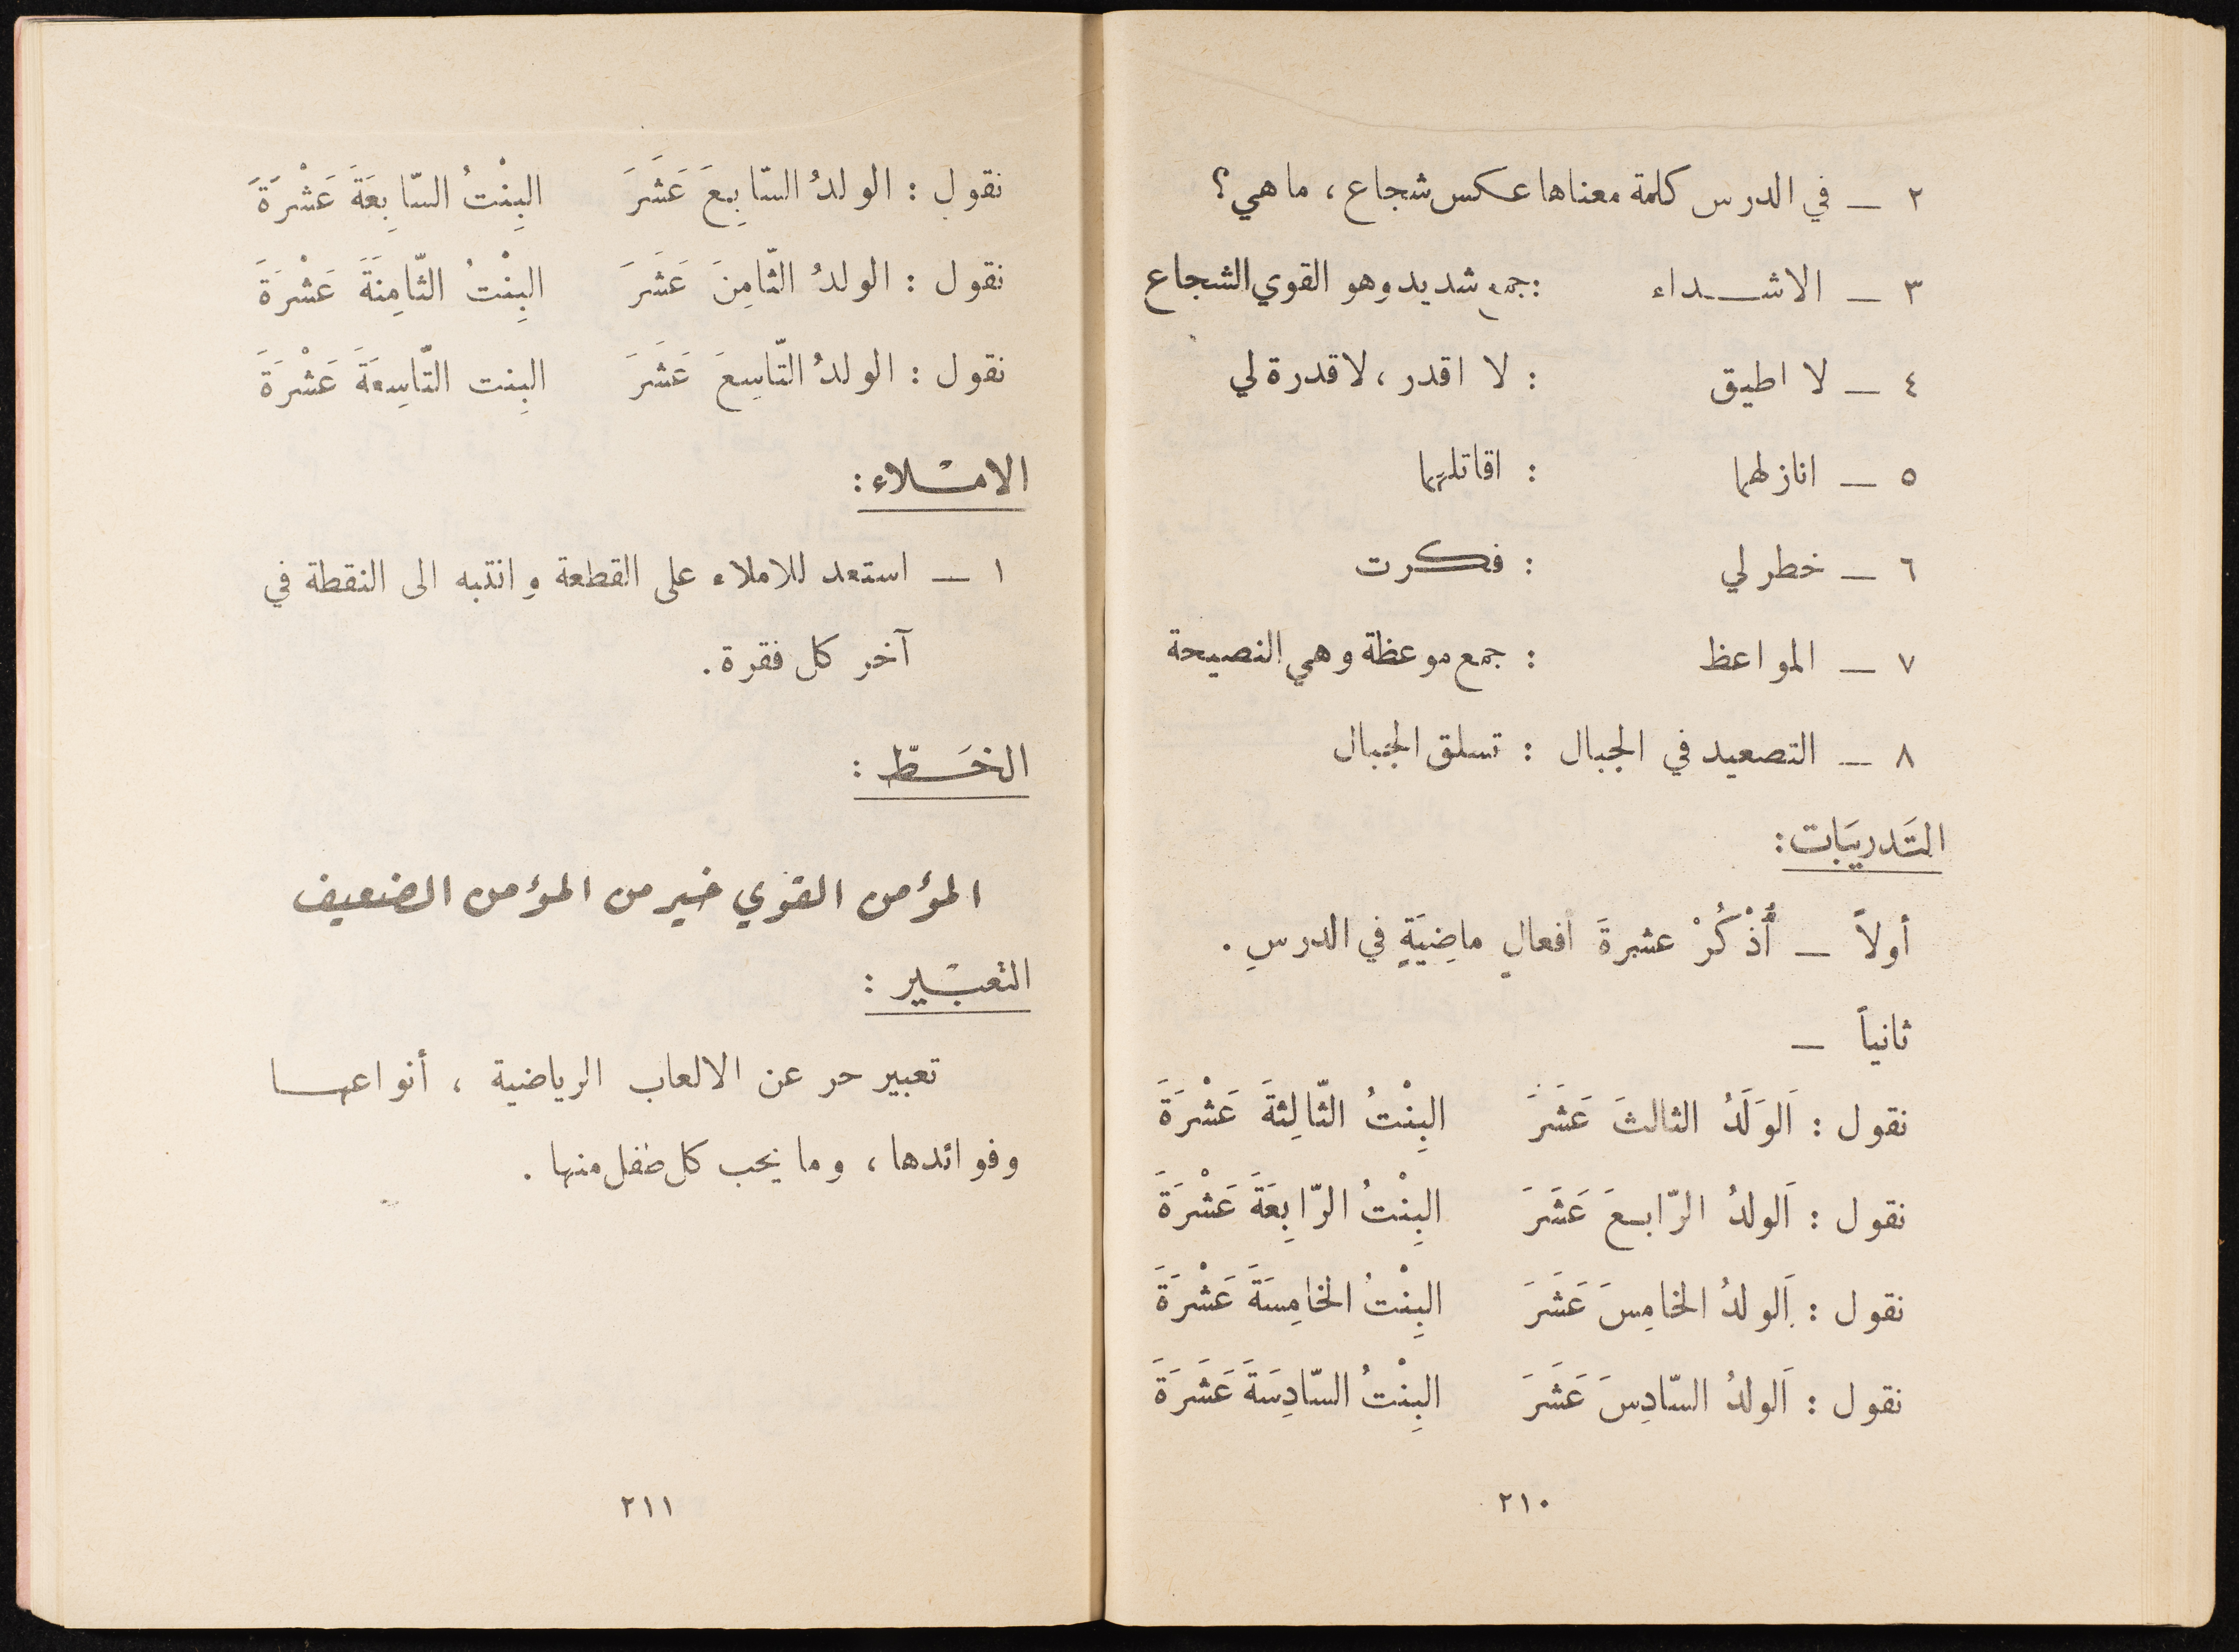 ٢ — في الدرس كلمة معناها عكس شجاع ، ما هي ؟
٣ — الاشـــداء : جمع شديد وهو القوي الشجاع
٤ — لا اطيق : لا اقدر ، لا قدرة لي
٥ — انازلهما : اقاتلهما
٦ — خطر لي : فكرت
٧ — المواعظ : جمع موعظة وهي النصيحة
٨ — التصعيد في الجبال : تسلق الجبال
التَدريَبات :
أولاً — أُذْكُرْ عشرةَ أفعالٍ ماضِيَةٍ في الدرسِ .
ثانياً —
نقول : اَلوَلَدُ الثالثَ عَشَرَ البِنْتُ الثّالِثةَ عَشْرَةَ
نقول : اَلولدُ الرّابعَ عَشَرَ البِنْتُ الرّابِعَةَ عَشْرَةَ
نقول : اَلولدُ الخامِسَ عَشَرَ البِنْتُ الخامِسَةَ عَشْرَةَ
نقول : اَلولدُ السّادِسَ عَشَرَ البِنْتُ السّادِسَةَ عَشَرَةَ
٢١٠
نقول : الولدُ السّابِعَ عَشَرَ البِنْتُ السّابِعَةَ عَشْرَةَ
نقول : الولدُ الثّامِنَ عَشَرَ البِنْتُ الثّامِنَةَ عَشْرَةَ
نقول : الولدُ التّاسِعَ عَشَرَ البِنت التّاسِعَةَ عَشْرَةَ
الامْـلاء :
١ — استعد للاملاء على القطعة وانتبه الى النقطة في
آخر كل فقرة .
الخَـطّ :
المؤمن القوي خير من المؤمن الضعيف
التعبْـير :
تعبير حر عن الالعاب الرياضية ، أنواعهـــا
وفوائدها ، وما يحب كل طفل منها .
٢١١